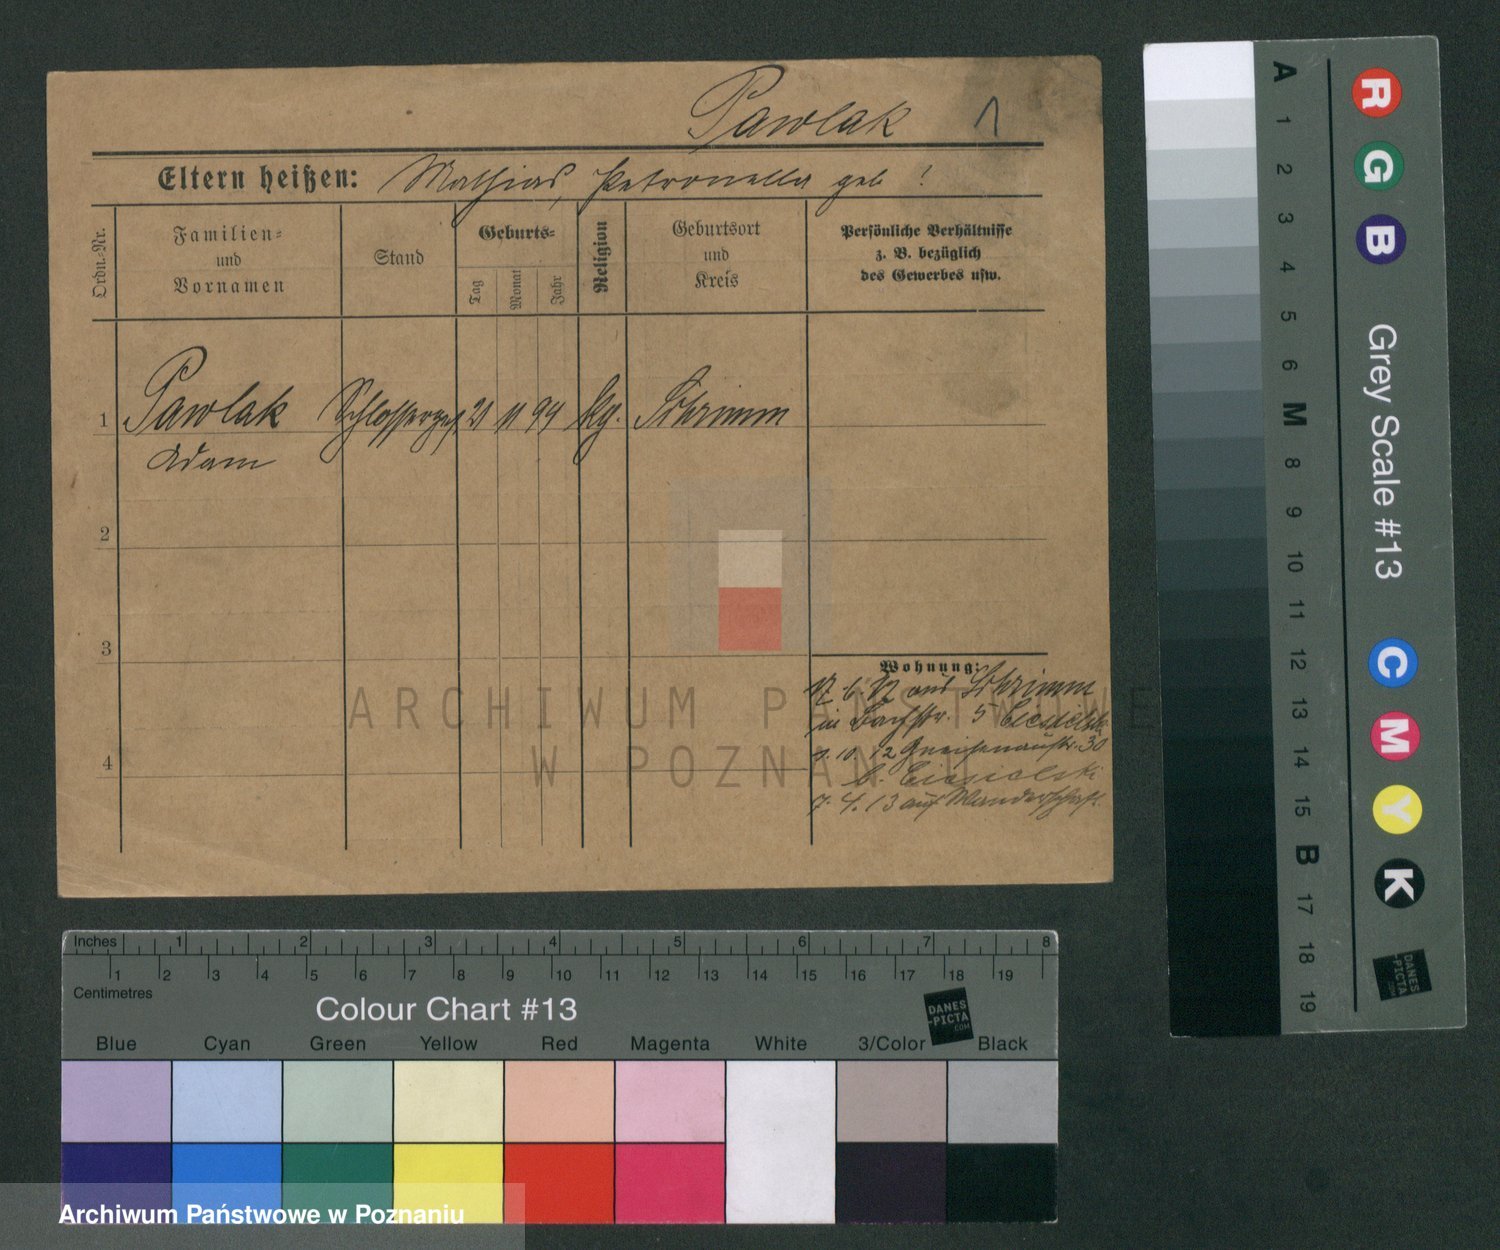 Pawlak 1
Eltern heißen: Mathias, Petronella geb !
Ordn.-Nr.
Familien-
und
Vornamen
Stand
Geburts-
Tag
Monat
Jahr
Religion
Geburtsort
und
Kreis
Persönliche Verhältnisse
z. B. bezüglich
des Gewerbes usw.
1 Pawlak Schlosserges. 21 11 94 kg. Schrimm
Adam
2
3
4
Wohnung:
6 12 aus Schrimm
in Bachstr. 5
10. 12 Gneisenaustr. 30
b. Ciesielski
7. 4. 13 auf Wanderschaft
ARCHIWUM PAŃSTWOWE
W POZNANIU
A 1 2 3 4 5 6 M 8 9 10 11 12 13 14 15 B 17 18 19
R G B
Grey Scale #13
C M Y K
DANES
-PICTA
.COM
Inches 1 2 3 4 5 6 7 8
1 2 3 4 5 6 7 8 9 10 11 12 13 14 15 16 17 18 19
Centimetres
Colour Chart #13
DANES
-PICTA
.COM
Blue Cyan Green Yellow Red Magenta White 3/Color Black
Archiwum Państwowe w Poznaniu